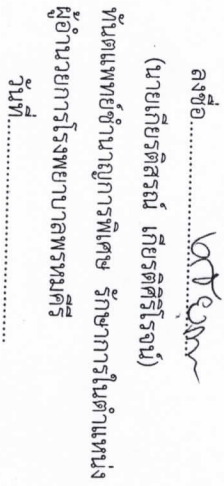 ลงชื่อ........................................
(นายเกียรติสรณ์ เกียรติศิริโรจน์)
ทันตแพทย์ชำนาญการพิเศษ รักษาการในตำแหน่ง
ผู้อำนวยการโรงพยาบาลพรหมคีรี
วันที่........................................